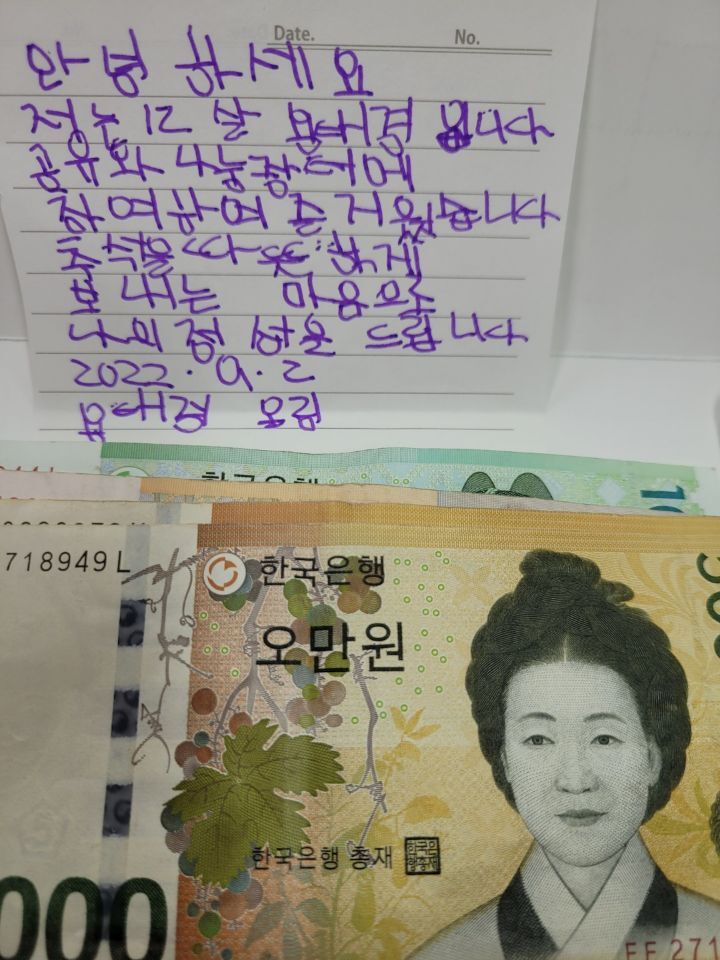 Date. No.
안녕하세요
저는 12살 봉태경 입니다
공유와 나눔장터에
참여하여 즐거웠습니다
추석을 따뜻하게
보내는 마음으로
나의 정성을 드립니다
2022. 9. 2
태경 올림
한국은행
718949L
한국은행
오만원
한국은행 총재
한국은행총재
000
EF 271